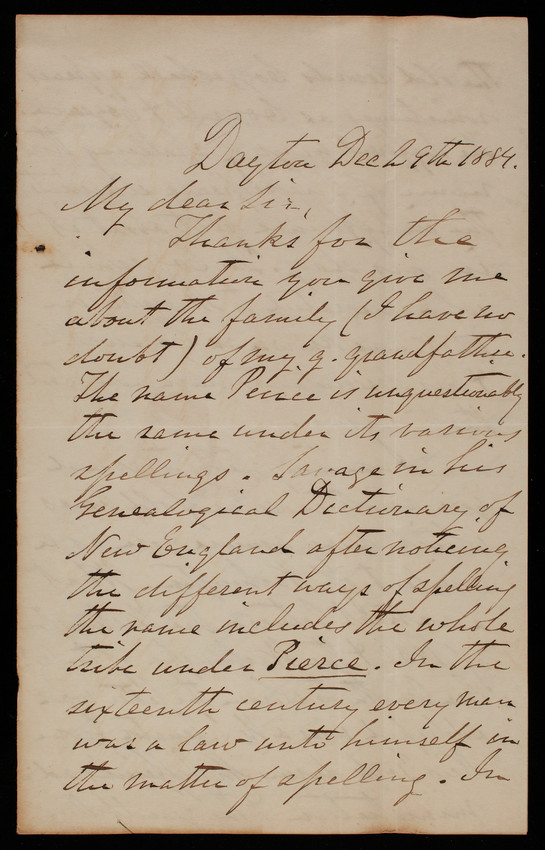 Dayton Dec 29th 1884.
My dear Sir,
Thanks for the
information you give me
about the family (I have no
doubt) of my g. grandfather.
The name Peirce is unquestionably
the same under its various
spellings. Savage in his
Genealogical Dictionary of
New England after noticing
the different ways of spelling
the name includes the whole
tribe under Pierce. In the
sixteenth century every man
was a law unto himself in
the matter of spelling. In